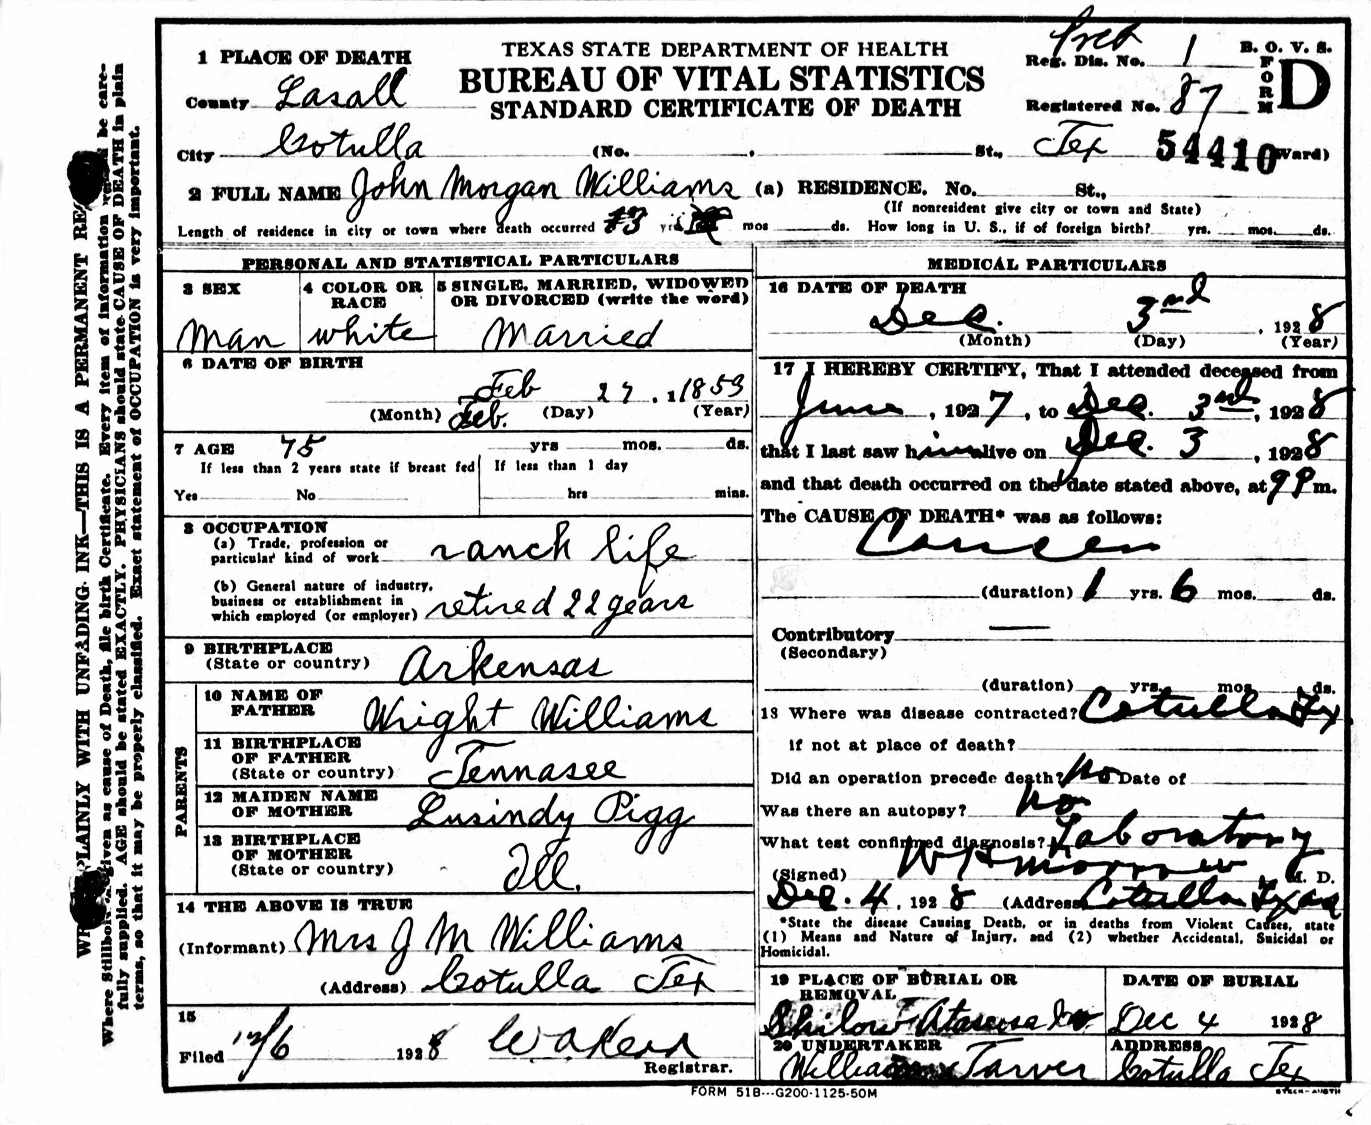 TEXAS STATE DEPARTMENT OF HEALTH
BUREAU OF VITAL STATISTICS
STANDARD CERTIFICATE OF DEATH
Prct
Reg. Dis. No. 1
Registered No. 87
B. O. V. S.
FORM D
1 PLACE OF DEATH
County Lasall
City Cotulla (No. , St., Tex 54410 Ward)
2 FULL NAME John Morgan Williams (a) RESIDENCE. No. St.,
(If nonresident give city or town and State)
Length of residence in city or town where death occurred yrs mos ds. How long in U. S., if of foreign birth? yrs. mos. ds.
PERSONAL AND STATISTICAL PARTICULARS
3 SEX
Man
4 COLOR OR RACE
white
5 SINGLE, MARRIED, WIDOWED
OR DIVORCED (write the word)
Married
6 DATE OF BIRTH
Feb 27, 1853
(Month) Feb. (Day) (Year)
7 AGE 75 yrs mos. ds.
If less than 2 years state if breast fed
Yes No
If less than 1 day
hrs mins.
8 OCCUPATION
(a) Trade, profession or
particular kind of work ranch life
(b) General nature of industry,
business or establishment in
which employed (or employer) retired 22 years
9 BIRTHPLACE
(State or country) Arkensas
PARENTS
10 NAME OF
FATHER Wright Williams
11 BIRTHPLACE
OF FATHER
(State or country) Tennasee
12 MAIDEN NAME
OF MOTHER Lusindy Pigg
13 BIRTHPLACE
OF MOTHER
(State or country) Ill.
14 THE ABOVE IS TRUE
(Informant) Mrs J M Williams
(Address) Cotulla Tex
15
Filed 12/6 1928
Registrar.
MEDICAL PARTICULARS
16 DATE OF DEATH
Dec. 3rd, 1928
(Month) (Day) (Year)
17 I HEREBY CERTIFY, That I attended deceased from
June, 1927, to Dec. 3rd, 1928
that I last saw him alive on Dec. 3, 1928
and that death occurred on the date stated above, at 9 P m.
The CAUSE OF DEATH* was as follows:
Cancer
(duration) 1 yrs. 6 mos. ds.
Contributory —
(Secondary)
(duration) yrs. mos ds.
18 Where was disease contracted? Cotulla Tex
if not at place of death?
Did an operation precede death? No Date of
Was there an autopsy? No
What test confirmed diagnosis? Laboratory
(Signed) W H Morrow M. D.
Dec. 4, 1928 (Address Cotulla Texas
*State the disease Causing Death, or in deaths from Violent Causes, state
(1) Means and Nature of Injury, and (2) whether Accidental, Suicidal or
Homicidal.
19 PLACE OF BURIAL OR
REMOVAL
Shilow Atascosa
DATE OF BURIAL
Dec 4 1928
20 UNDERTAKER
Tarver
ADDRESS
Cotulla Tex
FORM 51B---G200-1125-50M
PLAINLY WITH UNFADING INK—THIS IS A PERMANENT
Where Stillborn given as cause of Death, file birth Certificate. Every item of information be care-
fully supplied. AGE should be stated EXACTLY. PHYSICIANS should state CAUSE OF DEATH in plain
terms, so that it may be properly classified. Exact statement of OCCUPATION is very important.